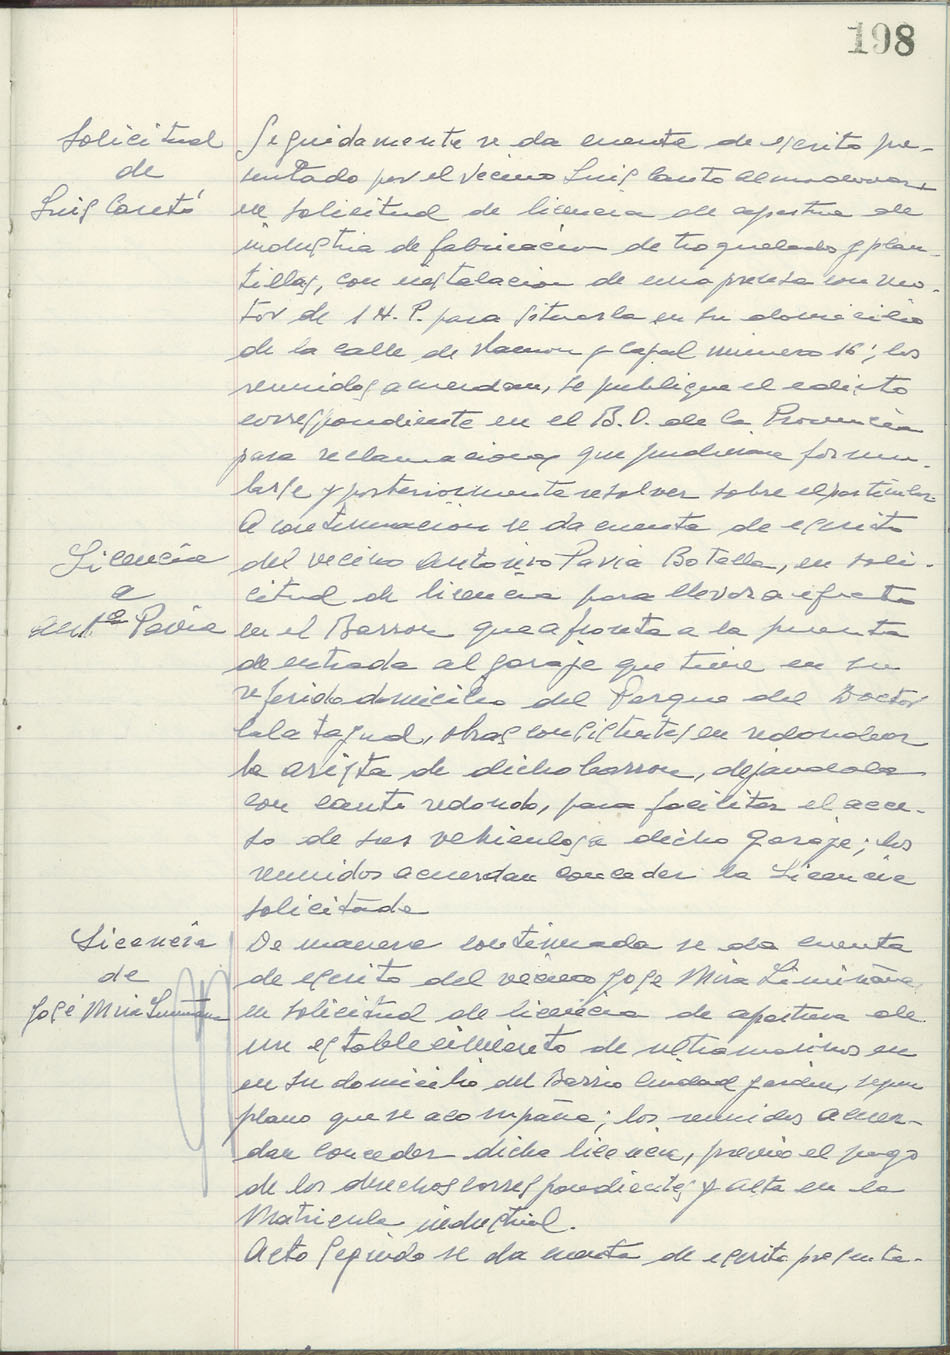 198
Solicitud
de
Luis Cantó
Seguidamente se da cuenta de escrito pre-
sentado por el vecino Luis Canto Almodovar
en solicitud de licencia de apertura de
industria de fabricación de troquelados y plan-
tillas, con instalacion de una prensa con mo-
tor de 1 H. P. para situarla en su domicilio
de la calle de Ramon y Cajal número 16; los
reunidos acuerdan, se publique el edicto
correspondiente en el B. O. de la Provincia
para reclamaciones que pudieran formu-
larse y posteriormente resolver sobre el particular.
Licencia
a
Antº Pavía
A continuación se da cuenta de escrito
del vecino Antonio Pavia Botella, en soli-
citud de licencia para llevar a efecto
en el Barron que afronta a la puerta
de entrada al garaje que tiene en su
referido domicilio del Parque del Doctor
Calatayud, obras consistentes en redondear
la arista de dicho barron, dejandola
con canto redondo, para facilitar el acce-
so de sus vehiculos a dicho garaje; los
reunidos acuerdan conceder la Licencia
solicitada
Licencia
de
José Mira Liminana
De manera continuada se da cuenta
de escrito del vecino José Mira Limiñana
en solicitud de licencia de apertura de
un establecimiento de ultramarinos en
en su domicilio del Barrio Ciudad Jardin, segun
plano que se acompaña; los reunidos acuer-
dan conceder dicha licencia, previo el pago
de los derechos correspondientes y alta en la
Matricula industrial.
Acto seguido se da cuenta de escrito presenta-